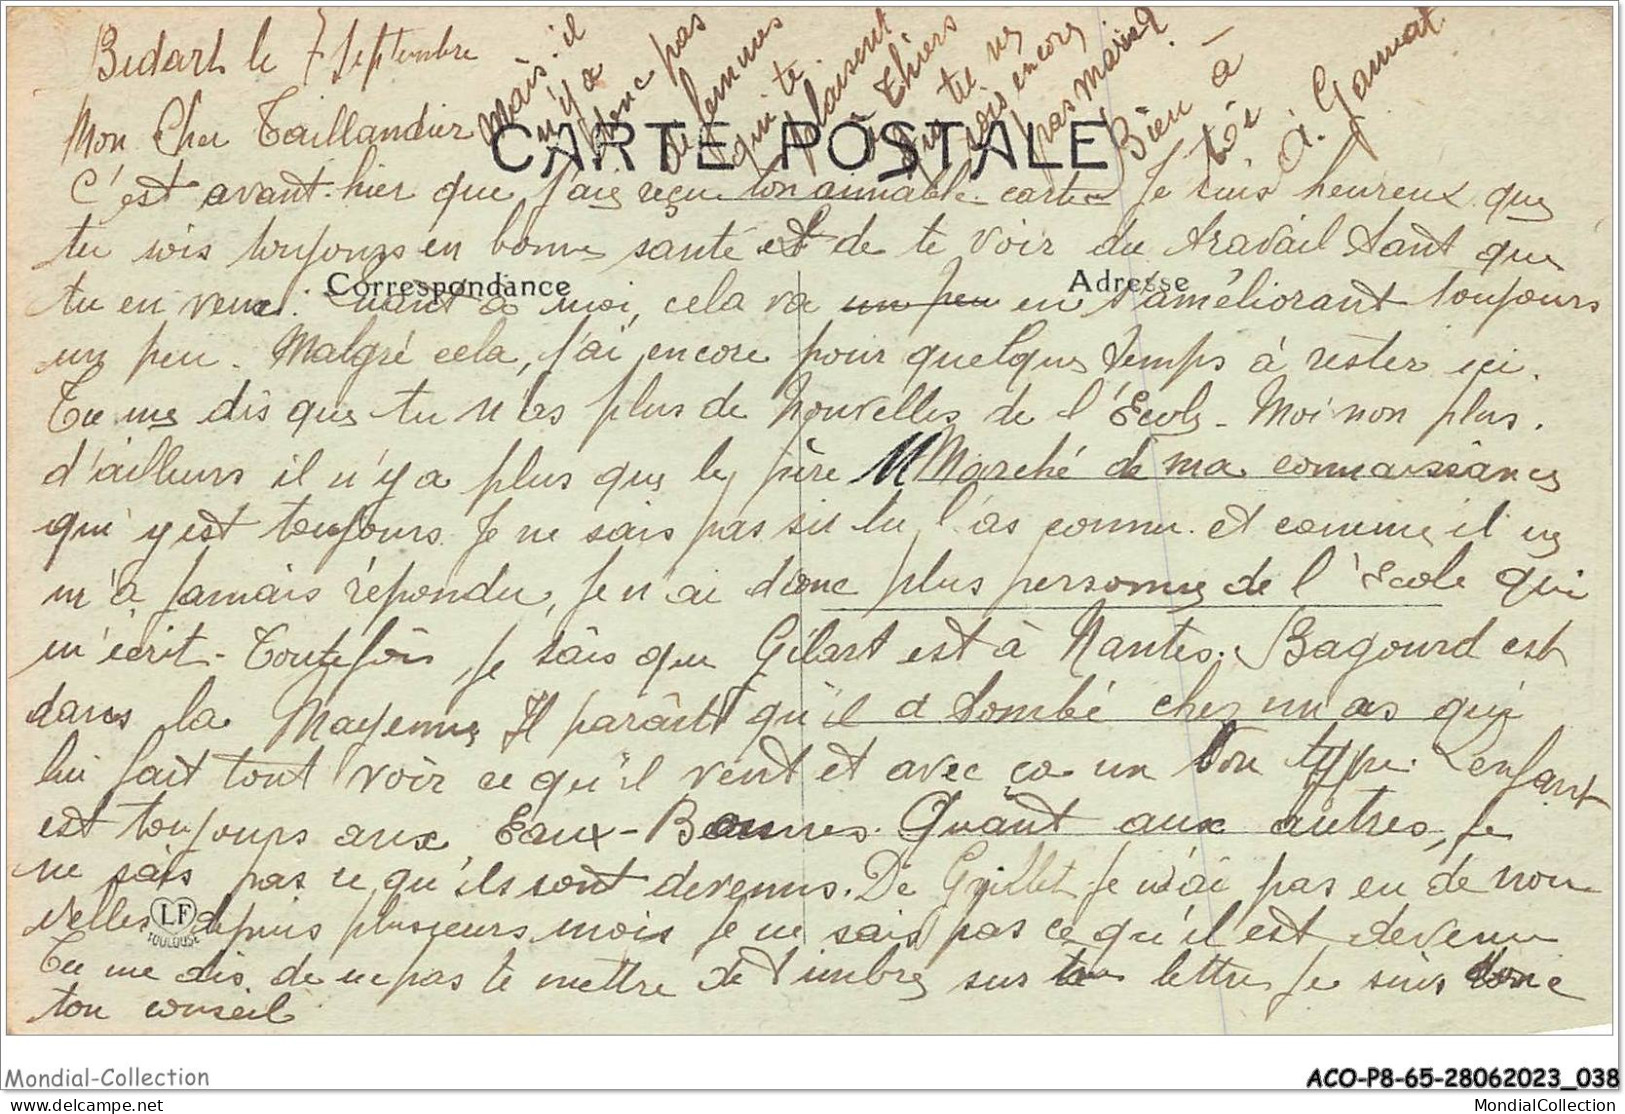 Bidart le 7 Septembre
Mon Cher Taillandier
CARTE POSTALE
C'est avant-hier que j'ai reçu ton aimable carte Je suis heureux que
tu sois toujours en bonne santé et de te voir du travail tant que
Correspondance
Adresse
tu en veux. Quant à moi, cela va un peu en s'améliorant toujours
un peu. Malgré cela, j'ai encore pour quelque temps à rester ici.
Tu me dis que tu n'as plus de nouvelles de l'Ecole - Moi non plus.
d'ailleurs il n'y a plus que le père Marché de ma connaissance
qui y est toujours. Je ne sais pas si tu l'as connu. et comme il ne
m'a jamais répondu, je n'ai donc plus personne de l'Ecole qui
m'écrit - Toutefois je sais que Gilart est à Nantes. Bagourd est
dans la Mayenne Il parâit qu'il a tombé chez un as qui
lui fait tout voir ce qu'il veut et avec ça un bon type. L'enfant
est toujours aux Eaux-Bonnes. Quant aux autres, je
ne sais pas ce qu'ils sont devenus. De Grillet je n'ai pas eu de nou
velles depuis plusieurs mois je ne sais pas ce qu'il est devenu
LF
TOULOUSE
Tu me dis de ne pas te mettre de timbre sur ta lettre je suis donc
ton conseil
Mais il
n'y a
donc pas
de femmes
qui te
plaisent
à Thiers
que tu ne
sois encore
pas marié ?
Bien à
toi
A. Gamat
Mondial-Collection
ACO-P8-65-28062023_038
delcampe.net
MondialCollection